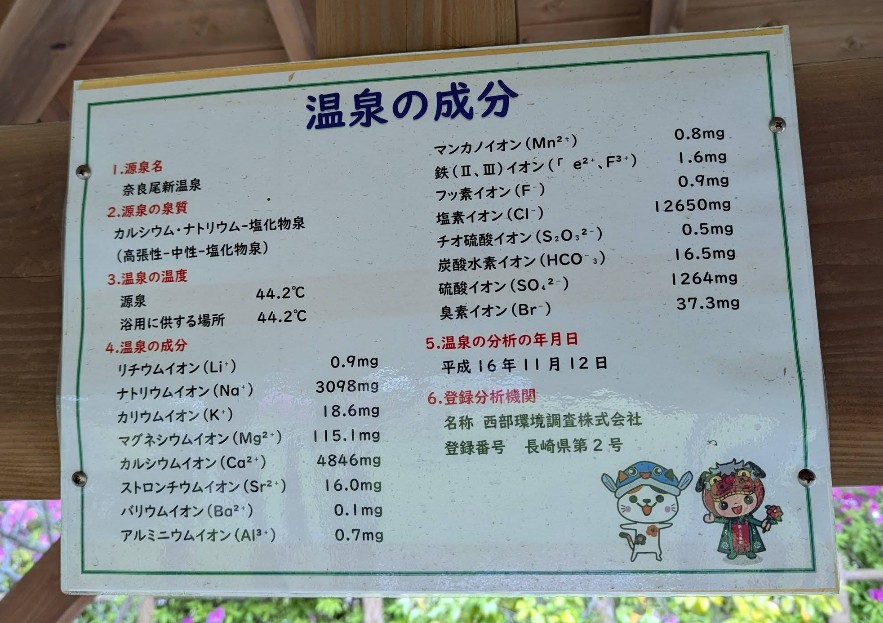 温泉の成分
1.源泉名
奈良尾新温泉
2.源泉の泉質
カルシウム・ナトリウム-塩化物泉
(高張性-中性-塩化物泉)
3.温泉の温度
源泉 44.2℃
浴用に供する場所 44.2℃
4.温泉の成分
リチウムイオン(Li⁺) 0.9mg
ナトリウムイオン(Na⁺) 3098mg
カリウムイオン(K⁺) 18.6mg
マグネシウムイオン(Mg²⁺) 115.1mg
カルシウムイオン(Ca²⁺) 4846mg
ストロンチウムイオン(Sr²⁺) 16.0mg
バリウムイオン(Ba²⁺) 0.1mg
アルミニウムイオン(Al³⁺) 0.7mg
マンカノイオン(Mn²⁺) 0.8mg
鉄(Ⅱ、Ⅲ)イオン(「 e²⁺、F³⁺) 1.6mg
フッ素イオン(F⁻) 0.9mg
塩素イオン(Cl⁻) 12650mg
チオ硫酸イオン(S₂O₃²⁻) 0.5mg
炭酸水素イオン(HCO⁻₃) 16.5mg
硫酸イオン(SO₄²⁻) 1264mg
臭素イオン(Br⁻) 37.3mg
5.温泉の分析の年月日
平成16年11月12日
6.登録分析機関
名称 西部環境調査株式会社
登録番号 長崎県第2号